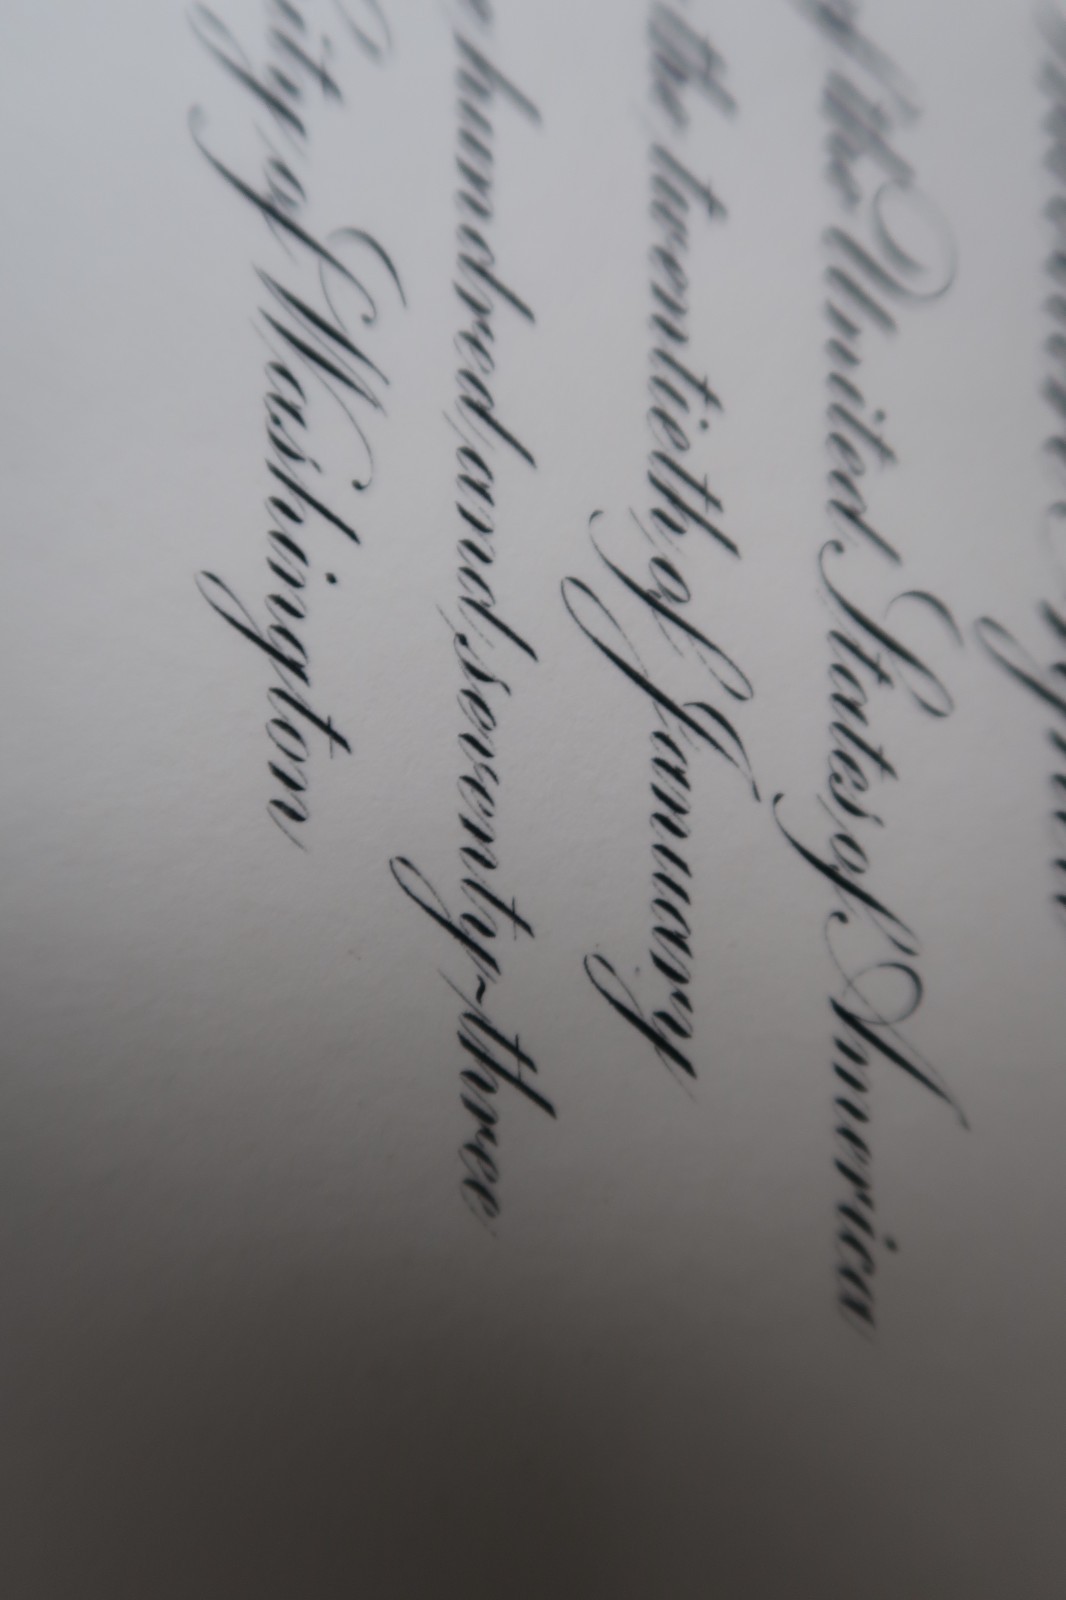 of the United States of America
the twentieth of January
hundred and seventy-three
City of Washington